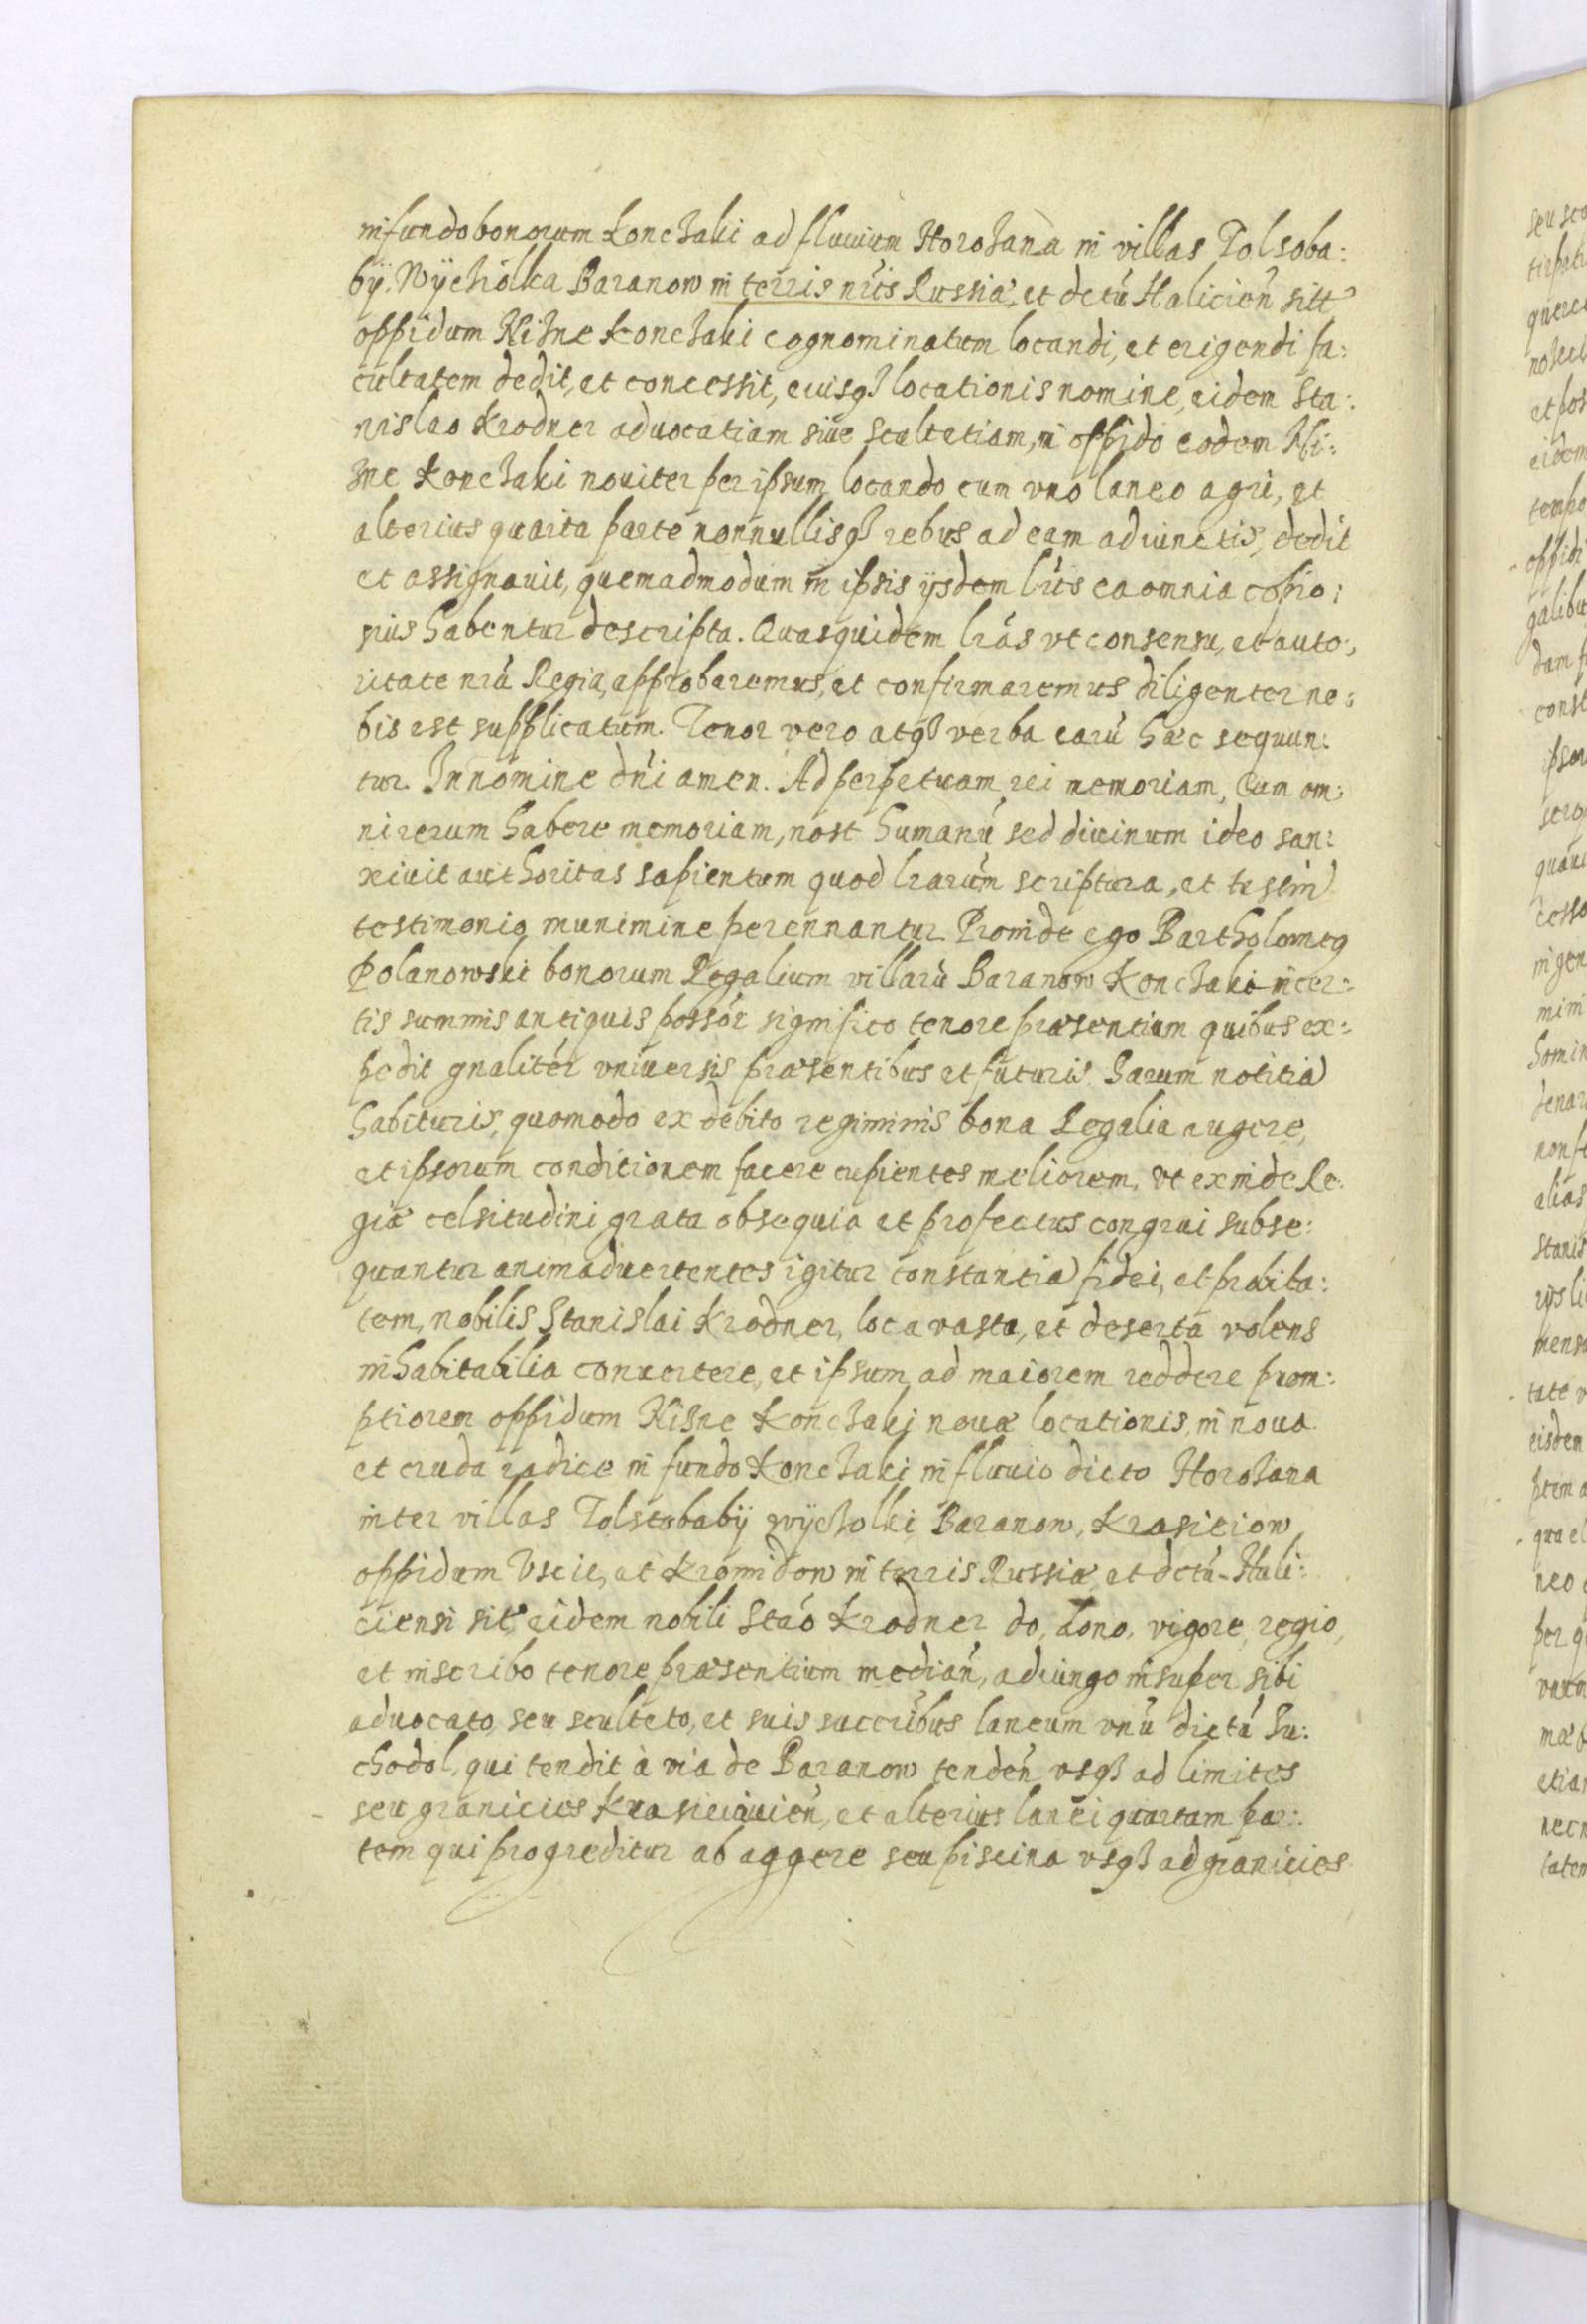 in fundo bonorum Konczaki ad fluuium Horozana in villas Tolsoba:
bÿ. Wÿcżiolka Baranow in terris nris Russiæ, et dctú Halicień sitt
oppidum Niżne Konczaki cognominatum locandi, et erigendi fa:
cultatem dedit, et concessit, eiusqȝ locationis nomine, eidem Sta:
nislao Krodner aduocatiam siue scultetiam, in oppido eodem Ni:
żne Konczaki nouiter per ipsum locando cum vno laneo agri, et
alterius quarta parte nonnullisqȝ rebus ad eam adiunctis, dedit
et assignauit, quemadmodum in ipsis ijsdem lris ea omnia copio:
sius habentur descripta. Quasquidem lrás vt consensu, et auto:
ritate nrá Regia, approbaremus, et confirmaremus diligenter no:
bis est supplicatum. Tenor vero atqȝ verba earú hæc sequun:
tur. In nomine dńi amen. Ad perpetuam rei memoriam, Cum om:
ni rerum habere memoriam, nost humanú sed diuinum ideo san:
xiuit authoritas sapientum quod lrarúm scriptura, et testiū
testimonio munimine perennantur. Proinde ego Bartholomeꝰ
Polanowski bonorum Regalium villarú Baranow Konczaki in cer:
tis summis antiquis possór significo tenore præsentium quibus ex:
pedit gnalitér vniuersis præsentibus et futuris harum notitiā
habituris, quomodo ex debito regiminis bona Regalia augere,
et ipsorum conditionem facere cupientes meliorem, vt exinde Re:
giæ celsitudini grata obsequia et profectus congrui subse:
quantur animaduertentes igitur constantiā fidei, et probita:
tem, nobilis Stanislai Krodner, loca vasta, et deserta volens
inhabitabilia conuertere, et ipsum ad maiorem reddere prom:
ptiorem oppidum Niżne Konczaki nouæ locationis, in noua
et cruda radice in fundo Konczaki in fluuio dicto Horożana
inter villas Tolstobabÿ wÿcżolki Baranow, Krasieiow
oppidum Vscie, et Kromidow in terris Russiæ, et dctú Hali:
ciensi sit eidem nobili Stáo Krodner do, dono, vigore, regio,
et inscribo tenore præsentium medián, adiungo insuper sibi
aduocato, seu sculteto, et suis succribus laneum vnú dictú Su:
chodol, qui tendit à via de Baranow tendeń vsqȝ ad limites
seu granicies Krasieiouień, et alterius lanei quartam par:
tem qui progreditur ab aggere seu piscina vsqȝ ad granicies